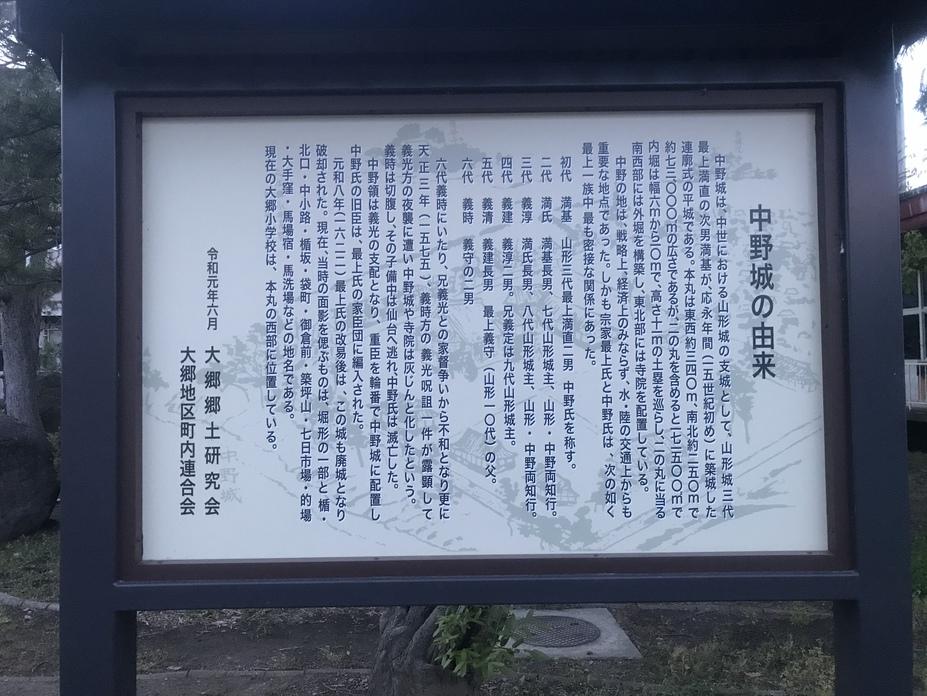 中野城の由来
中野城は、中世における山形城の支城として、山形城三代
最上満直の次男満基が、応永年間(一五世紀初め)に築城した
連廓式の平城である。本丸は東西約三四〇m、南北約二五〇mで
約七三、〇〇〇㎡の広さであるが、二の丸を含めると一七二五〇〇㎡で
内堀は幅六mから二〇mで、高さ十一mの土塁を巡らし、二の丸に当る
南西部には外堀を構築し、東北部には寺院を配置している。
中野の地は、戦略上、経済上のみならず、水・陸の交通上からも
重要な地点であった。しかも宗家最上氏と中野氏は、次の如く
最上一族中最も密接な関係にあった。
初代 満基 山形三代最上満直二男 中野氏を称す。
二代 満氏 満基長男、七代山形城主、山形・中野両知行。
三代 義淳 満氏長男、八代山形城主、山形・中野両知行。
四代 義建 義淳二男。兄義定は九代山形城主。
五代 義清 義建長男 最上義守(山形一〇代)の父。
六代 義時 義守の二男
六代義時にいたり、兄義光との家督争いから不和となり更に
天正三年(一五七五)、義時方の義光呪詛一件が露顕して
義光方の夜襲に遭い中野城や寺院は灰じんと化したという。
義時は切腹し、その子備中は仙台へ逃れ、中野氏は滅亡した。
中野領は義光の支配となり、重臣を輪番で中野城に配置し
中野氏の旧臣は、最上氏の家臣団に編入された。
元和八年(一六二二)最上氏の改易後は、この城も廃城となり
破却された。現在、当時の面影を偲ぶものは、堀形の一部と楯・
北口・中小路・楯坂・袋町・御倉前・築坪山・七日市場・的場
・大手窪・馬場宿・馬洗場などの地名である。
現在の大郷小学校は、本丸の西部に位置している。
令和元年六月 大郷郷土研究会
大郷地区町内連合会
中野城